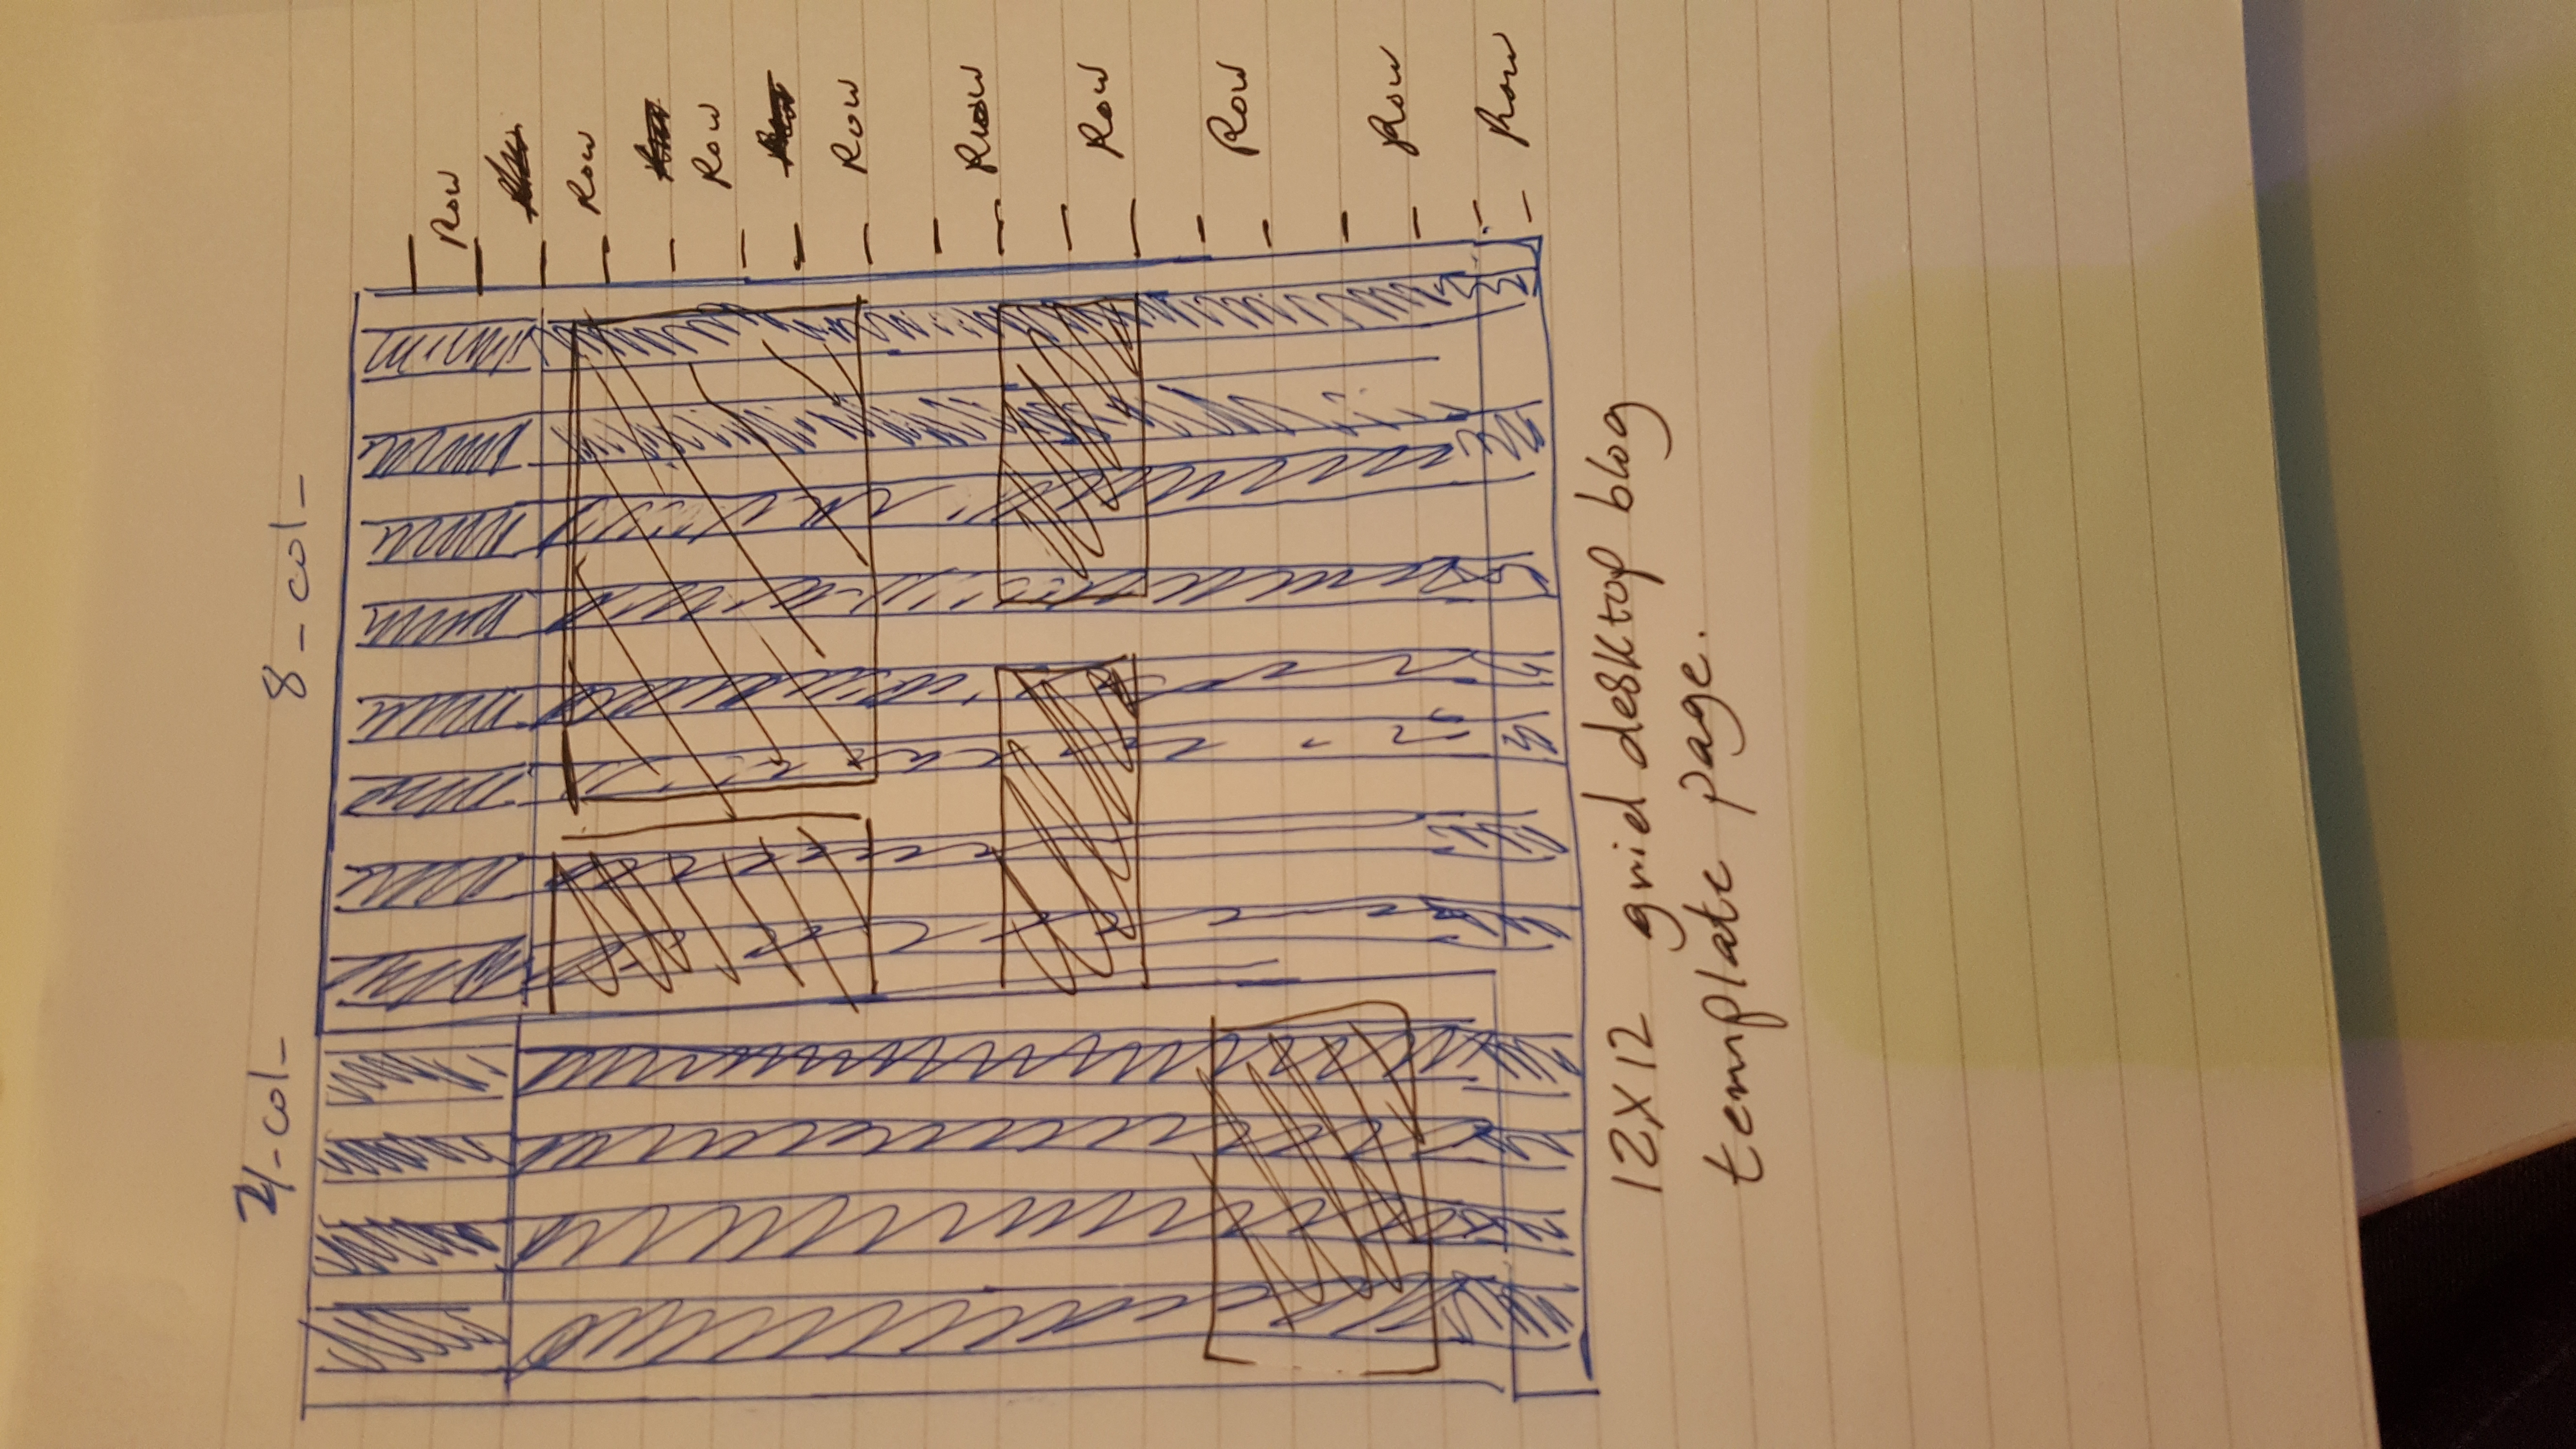 4-col-
8-col-
Row
Row
Row
Row
Row
Row
Row
Row
Row
12X12 grid desktop blog
template page.